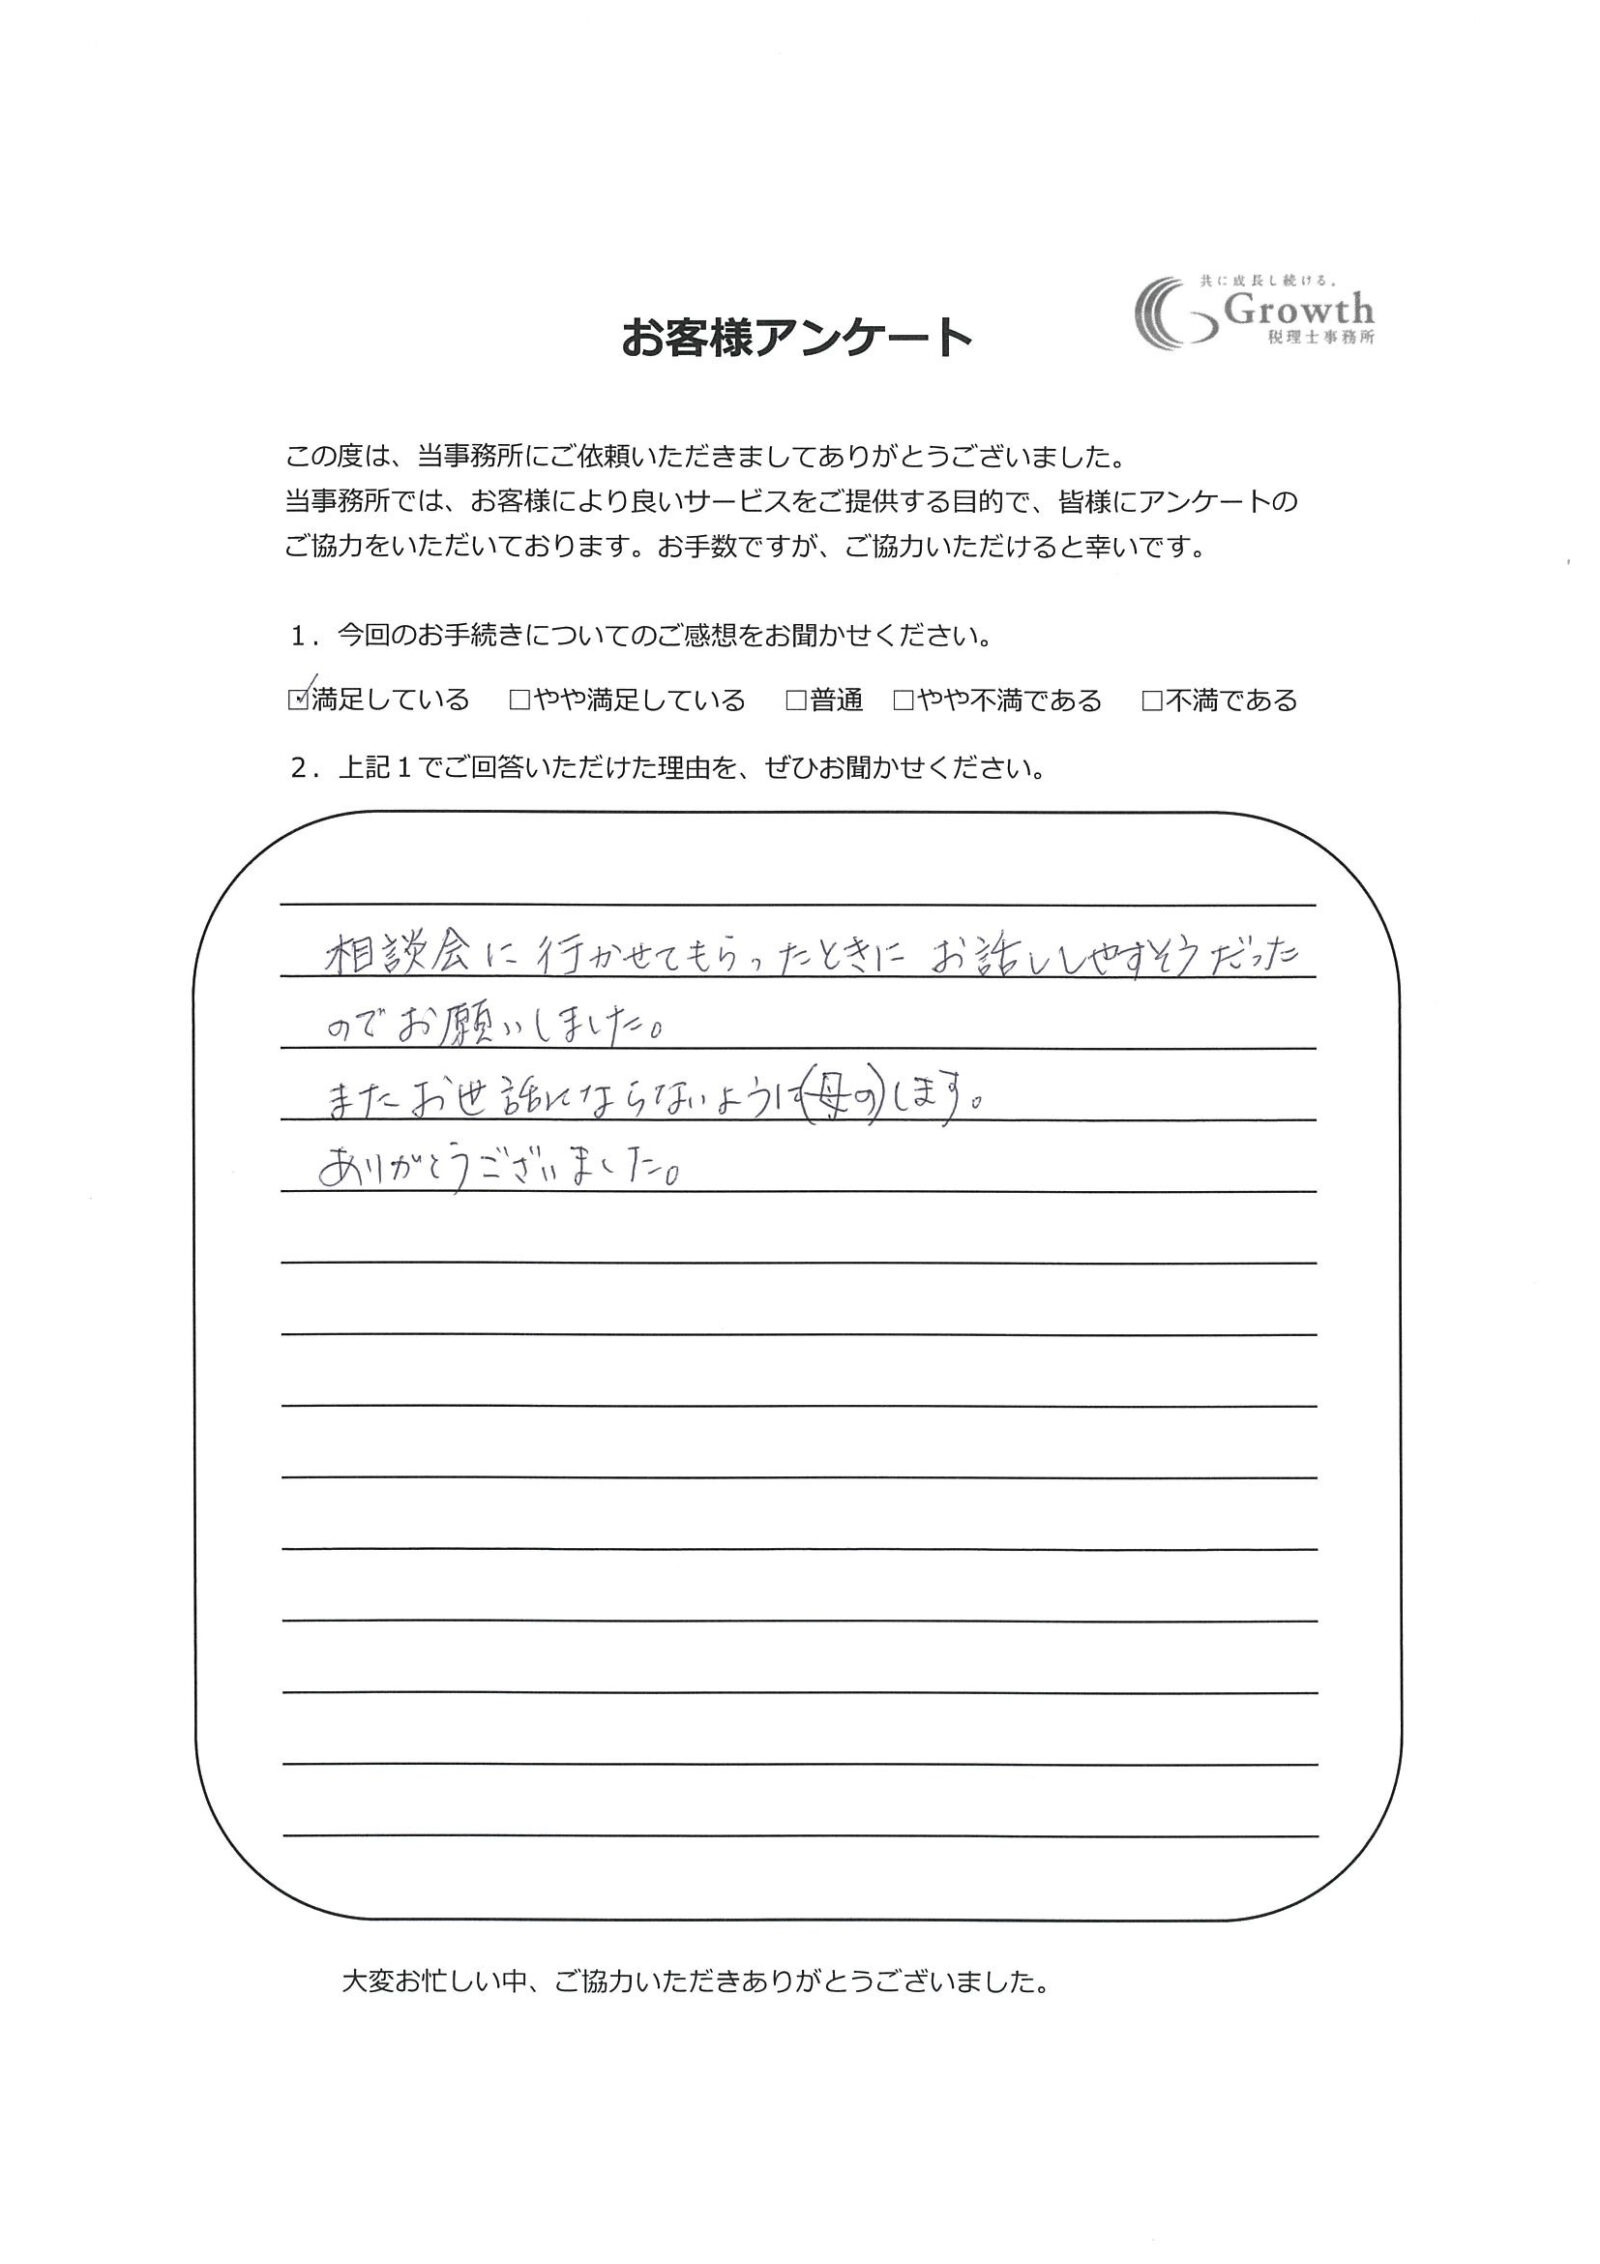 共に成長し続ける。
Growth
税理士事務所
お客様アンケート
この度は、当事務所にご依頼いただきましてありがとうございました。
当事務所では、お客様により良いサービスをご提供する目的で、皆様にアンケートの
ご協力をいただいております。お手数ですが、ご協力いただけると幸いです。
1．今回のお手続きについてのご感想をお聞かせください。
☑満足している □やや満足している □普通 □やや不満である □不満である
2．上記１でご回答いただけた理由を、ぜひお聞かせください。
相談会に行かせてもらったときにお話ししやすそうだった
のでお願いしました。
またお世話にならないように(母の)します。
ありがとうございました。
大変お忙しい中、ご協力いただきありがとうございました。